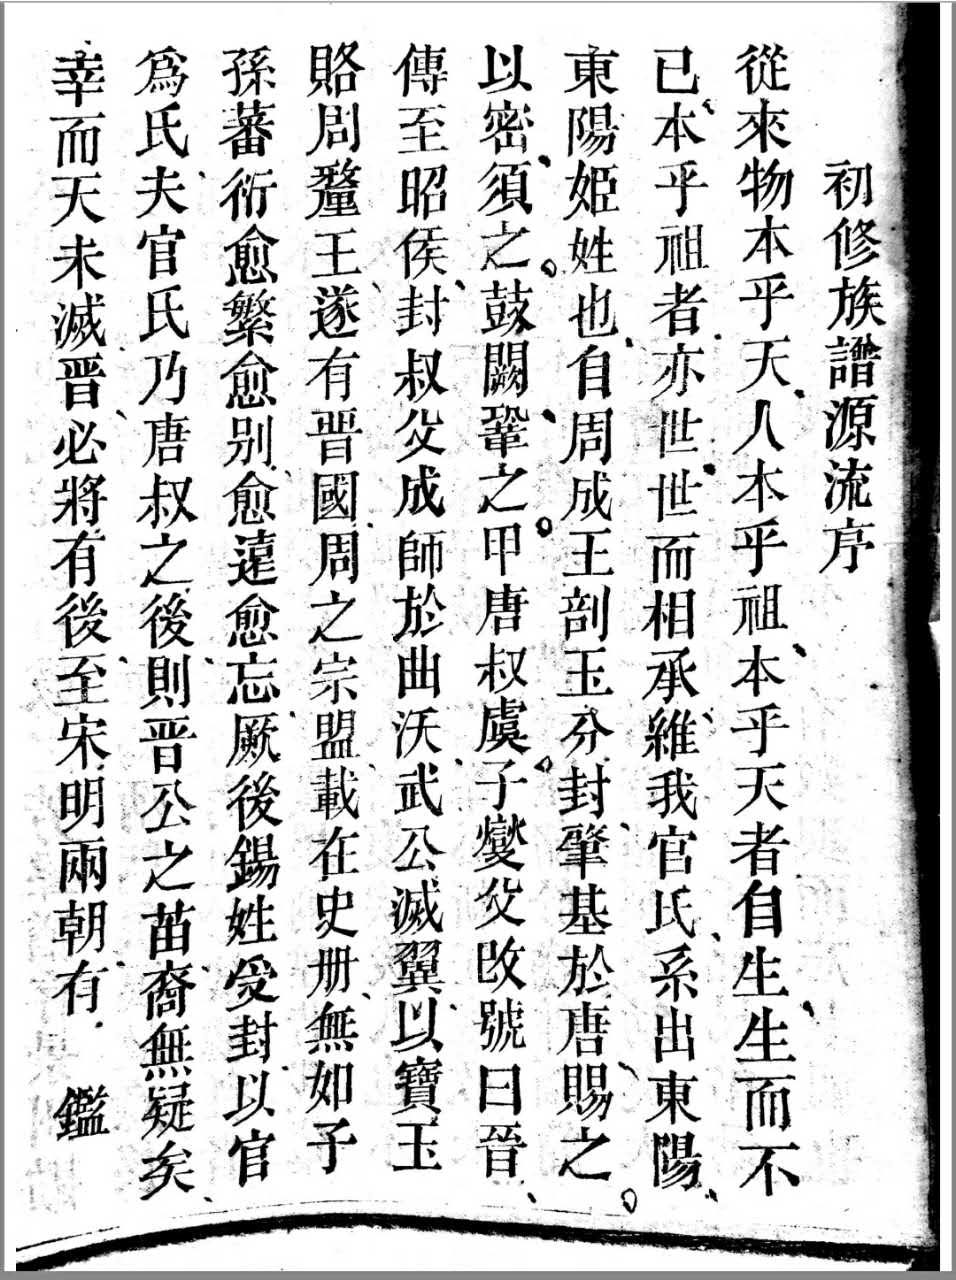 初修族譜源流序
從來物本乎天人本乎祖本乎天者自生生而不
已本乎祖者亦世世而相承維我官氏系出東陽
東陽姬姓也自周成王剖玉分封肇基於唐賜之
以密須之鼓闕鞏之甲唐叔虞子燮父改號曰晉
傳至昭侯封叔父成師於曲沃武公滅翼以寶玉
賂周釐王遂有晋國周之宗盟載在史册無如子
孫蕃衍愈繁愈别愈遠愈忘厥後錫姓受封以官
爲氏夫官氏乃唐叔之後則晋公之苗裔無疑矣
幸而天未滅晋必將有後至宋明兩朝有 鑑